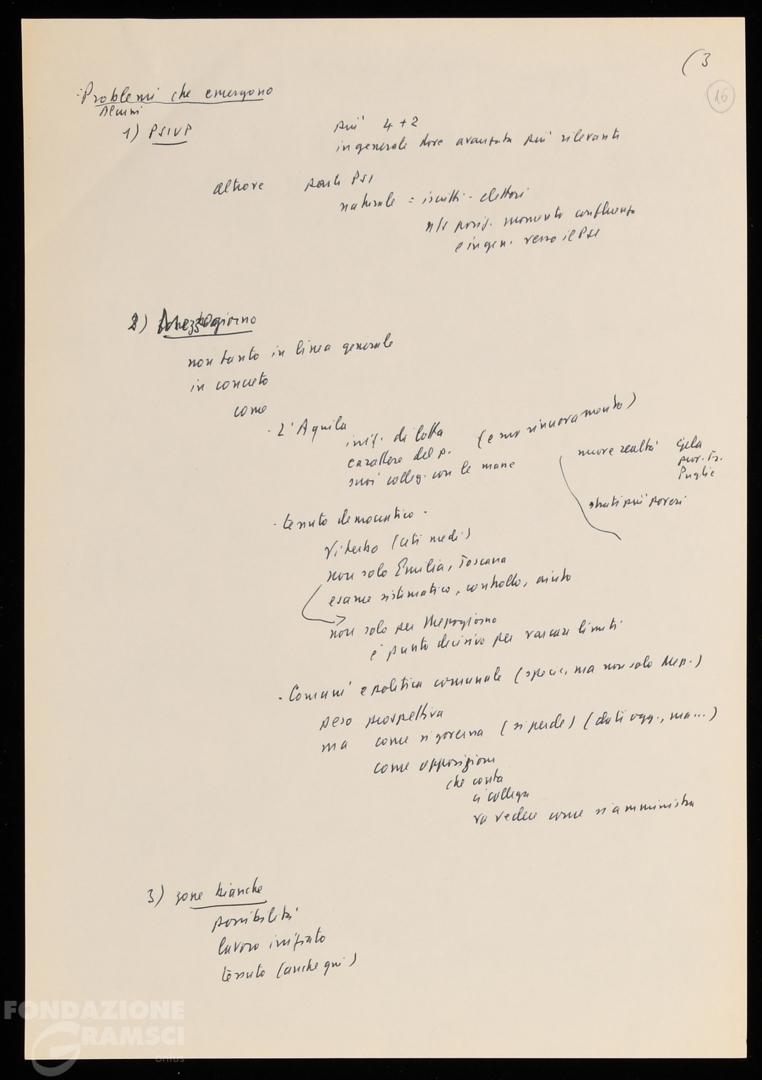 (3
16
Problemi che emergono
Alcuni
1) PSIUP
più 4+2
in generale dove avanzata più rilevanti
altrove parte PSI
naturale = iscritti - elettori
momento confluenza
e ingen. verso il PSI
2) Mezzogiorno
non tanto in linea generale
in concreto
come
- L'Aquila
iniz. di lotta
carattere del p. (e suo rinnovamento)
suoi colleg. con le masse
nuove realtà Gela
Puglie
strati più poveri
- tessuto democratico -
Viterbo (ceti medi)
non solo Emilia, Toscana
esame sistematico, controllo, aiuto
non solo per Mezzogiorno
è punto decisivo per varcare limiti
- Comuni e politica comunale (specie, ma non solo Mezz.)
peso prospettiva
ma come si governa (si perde) (dati ogg., ma...)
come opposizione
che conta
si collega
fa vedere come si amministra
3) zone bianche
possibilità
lavoro iniziato
tessuto (anche qui)
FONDAZIONE
GRAMSCI
onlus